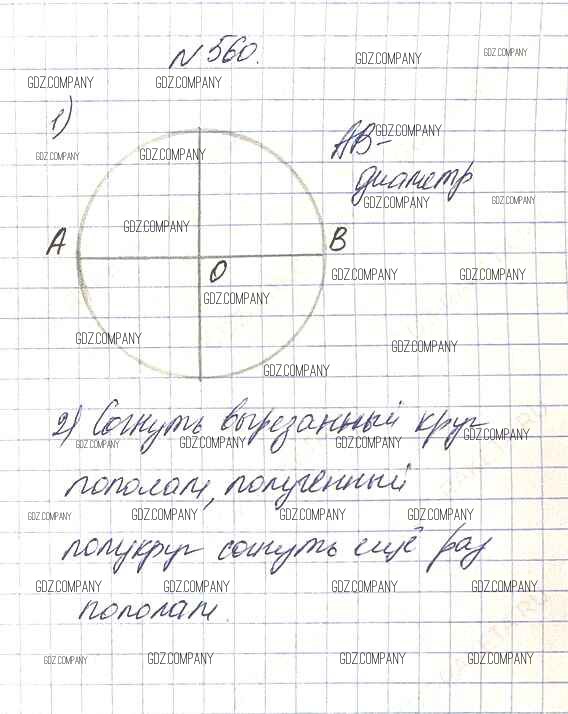 N 560.
GDZ.COMPANY GDZ.COMPANY
GDZ.COMPANY GDZ.COMPANY
1)
GDZ.COMPANY GDZ.COMPANY GDZ.COMPANY
AB-
диаметр
GDZ.COMPANY GDZ.COMPANY
GDZ.COMPANY
A B
O
GDZ.COMPANY GDZ.COMPANY
GDZ.COMPANY
GDZ.COMPANY GDZ.COMPANY
GDZ.COMPANY
2) Согнуть вырезанный круг
GDZ.COMPANY GDZ.COMPANY GDZ.COMPANY GDZ.COMPANY
пополам, полученный
GDZ.COMPANY GDZ.COMPANY GDZ.COMPANY GDZ.COMPANY
полукруг согнуть ещё раз
GDZ.COMPANY GDZ.COMPANY GDZ.COMPANY GDZ.COMPANY
пополам.
GDZ.COMPANY GDZ.COMPANY GDZ.COMPANY GDZ.COMPANY